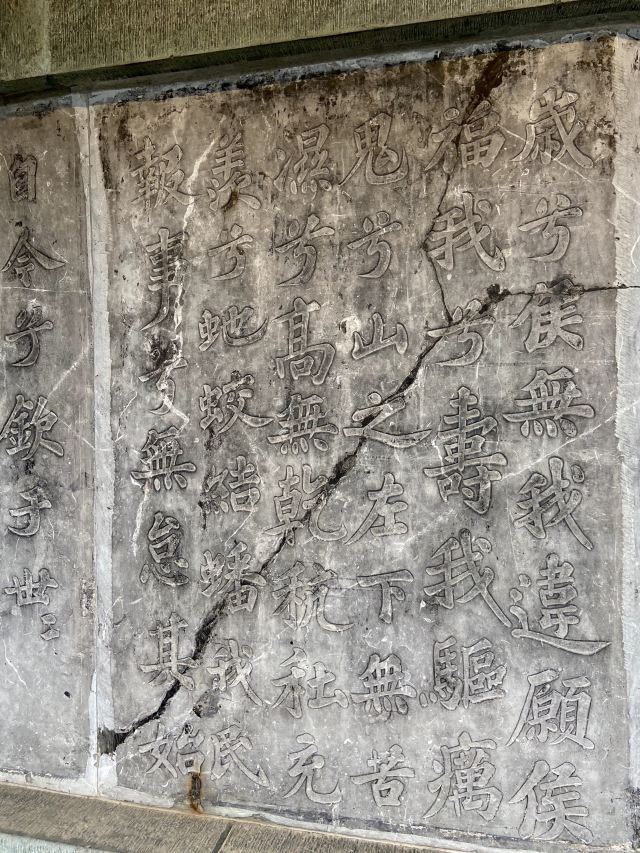 歲兮侯無我違願侯
福我兮壽我驅癘
鬼兮山之左下無苦
濕兮高無乾秔稌充
羨兮虵蛟結蟠我民
報事兮無怠其始
自今兮欽于世〻